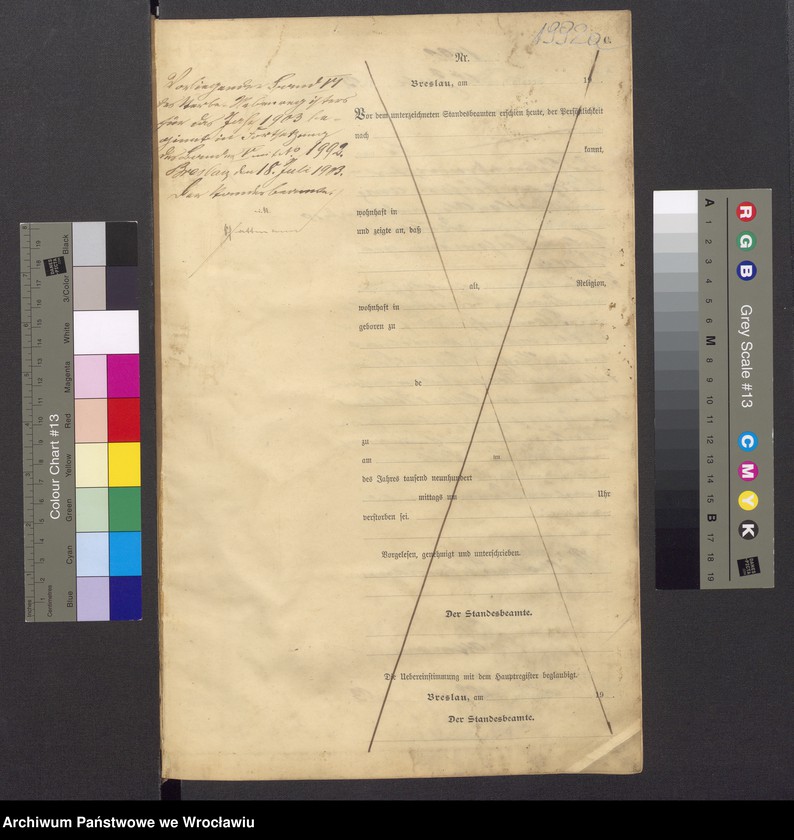 C.
Vorliegender Band VI
des Sterbe-Nebenregisters
für das Jahr 1903 be-
ginnt in Fortsetzung
des Bandes V mit No 1992.
Breslau den 18. Juli 1903.
Der Standesbeamte
Nr.
Breslau, am 19
Vor dem unterzeichneten Standesbeamten erschien heute, der Persönlichkeit
nach
kannt,
wohnhaft in
und zeigte an, daß
alt, Religion,
wohnhaft in
geboren zu
de
zu
am um
des Jahres tausend neunhundert
mittags um Uhr
verstorben sei.
Vorgelesen, genehmigt und unterschrieben.
Der Standesbeamte.
Die Uebereinstimmung mit dem Hauptregister beglaubigt.
Breslau, am 19
Der Standesbeamte.
Colour Chart #13
Blue Cyan Green Yellow Red Magenta White 3/Color Black
Inches
Centimetres
Grey Scale #13
R G B
C M Y K
A 1 2 3 4 5 6 M 8 9 10 11 12 13 14 15 B 17 18 19
Archiwum Państwowe we Wrocławiu